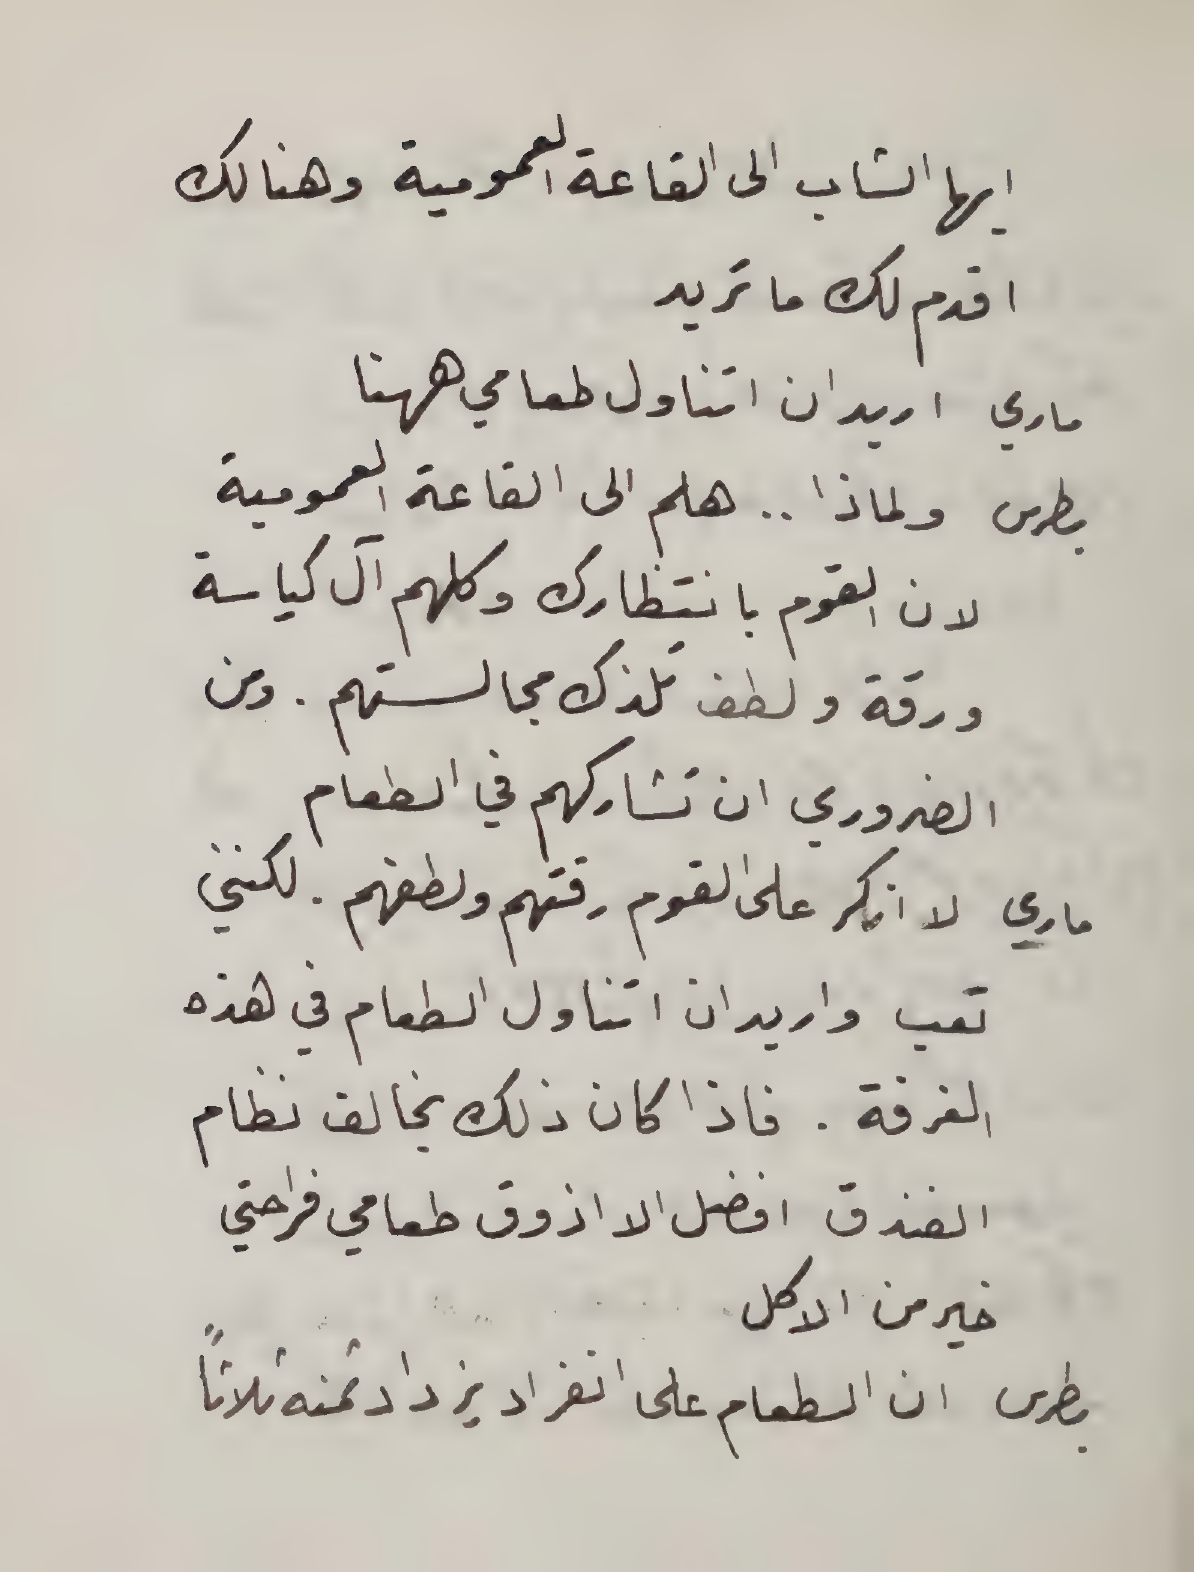 ايها الشاب الى القاعة العمومية وهنالك
اقدم لك ما تريد
ماري اريد ان اتناول طعامي ههنا
بطرس ولماذا .. هلم الى القاعة العمومية
لان القوم بانتظارك وكلهم آل كياسة
ورقة ولطف تلذك مجالستهم . ومن
الضروري ان تشاركهم في الطعام
ماري لا انكر على القوم رقتهم ولطفهم . لكنني
تعب واريد ان اتناول الطعام في هذه
الغرفة . فاذا كان ذلك يخالف نظام
الفندق افضل الا اذوق طعامي فراحتي
خير من الاكل
بطرس ان الطعام على انفراد يزداد ثمنه ثلاثاً